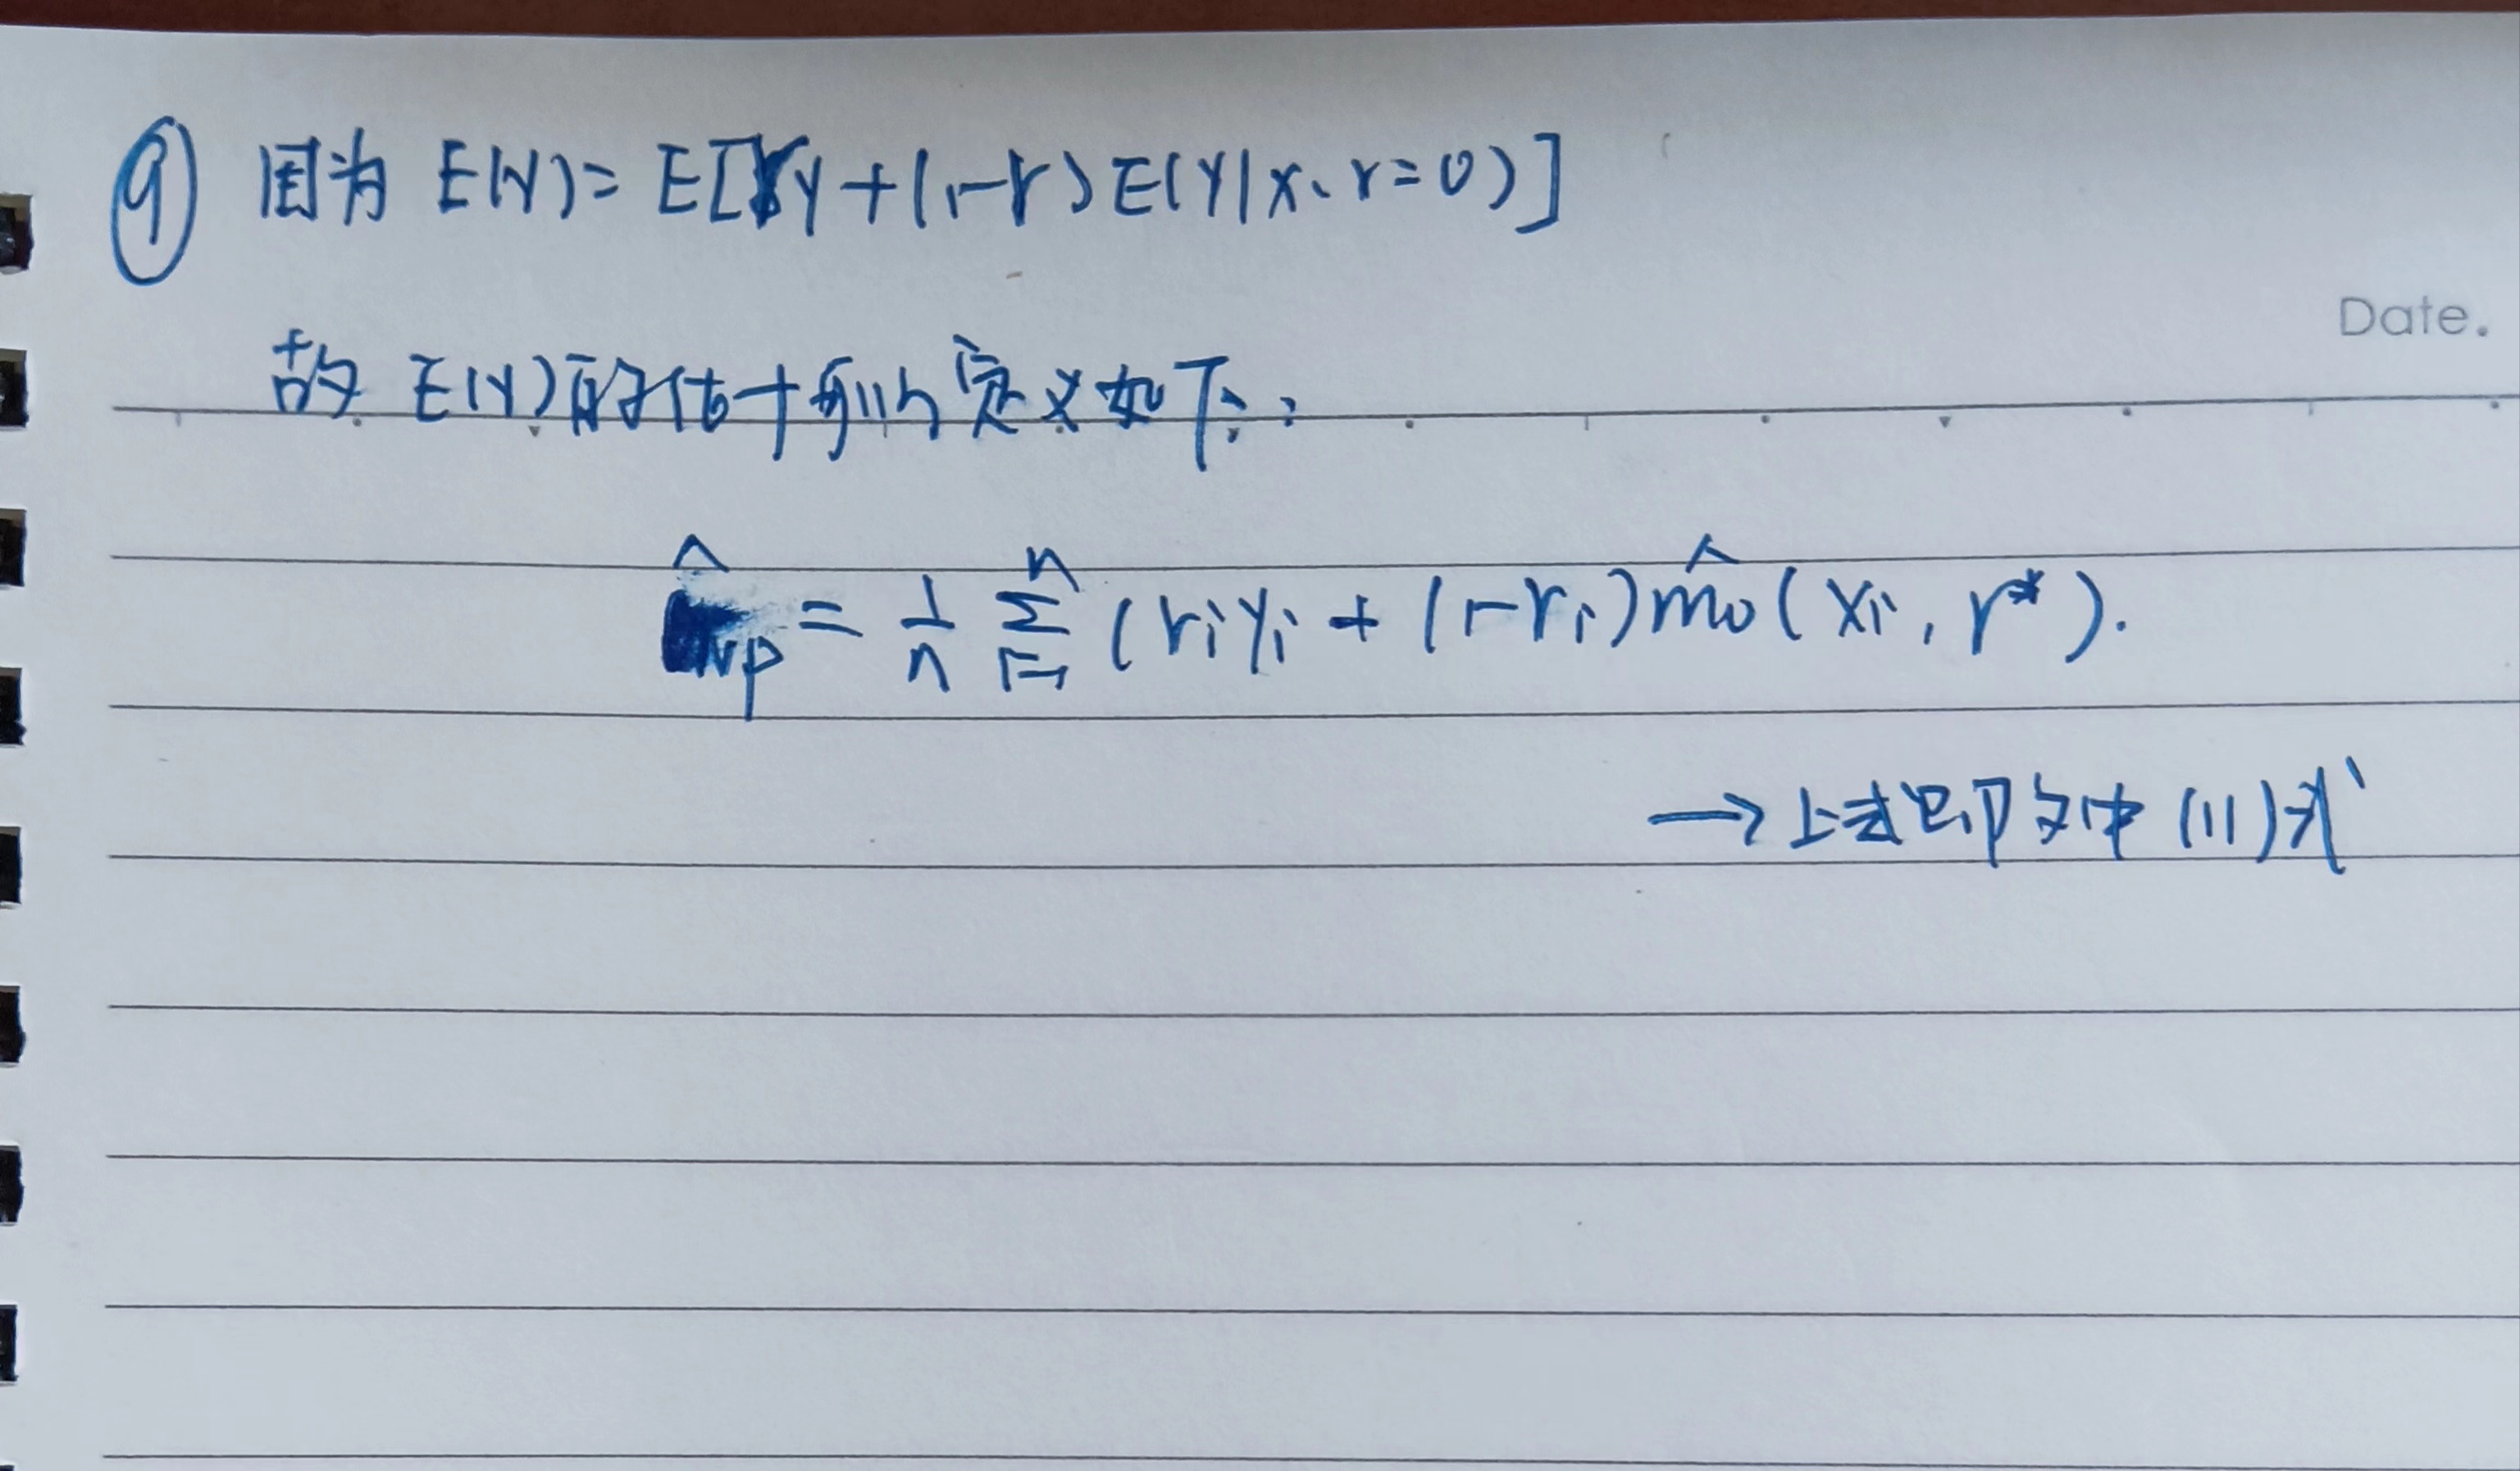 ⑨ 因为 E(Y)= E[ry+(1-r)E(Y|x、r=0)]
Date.
故 E(Y)的估计可以定义如下:
^np = 1/n Σ_{i=1}^{n} (r_i y_i + (1-r_i) m̂_0 (x_i, r*).
→上式即文中(11)式